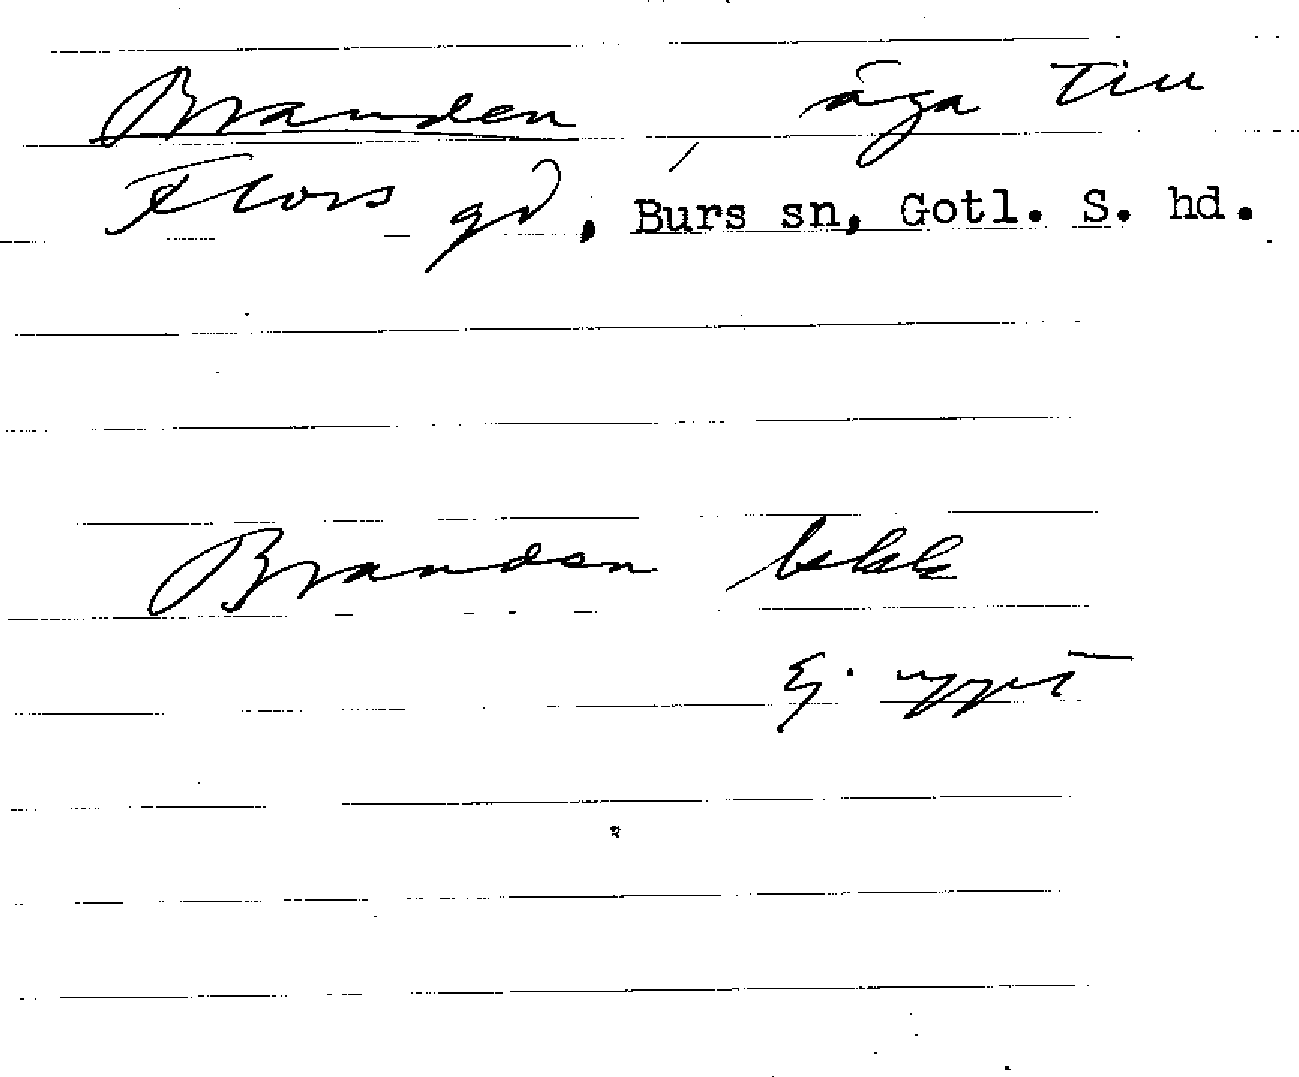 Branden åga till
Flors gd, Burs sn, Gotl. S. hd.
Branden
Ej. uppt